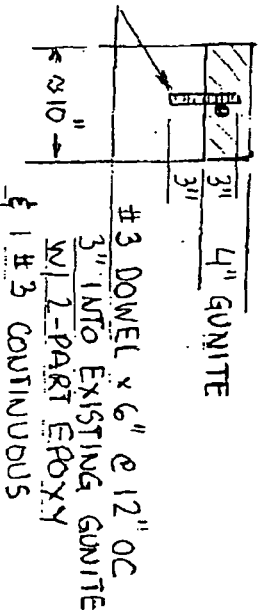 4" GUNITE
3"
3"
≈10"
#3 DOWEL x 6" @ 12" OC
3" INTO EXISTING GUNITE
W/ 2-PART EPOXY
& 1 #3 CONTINUOUS